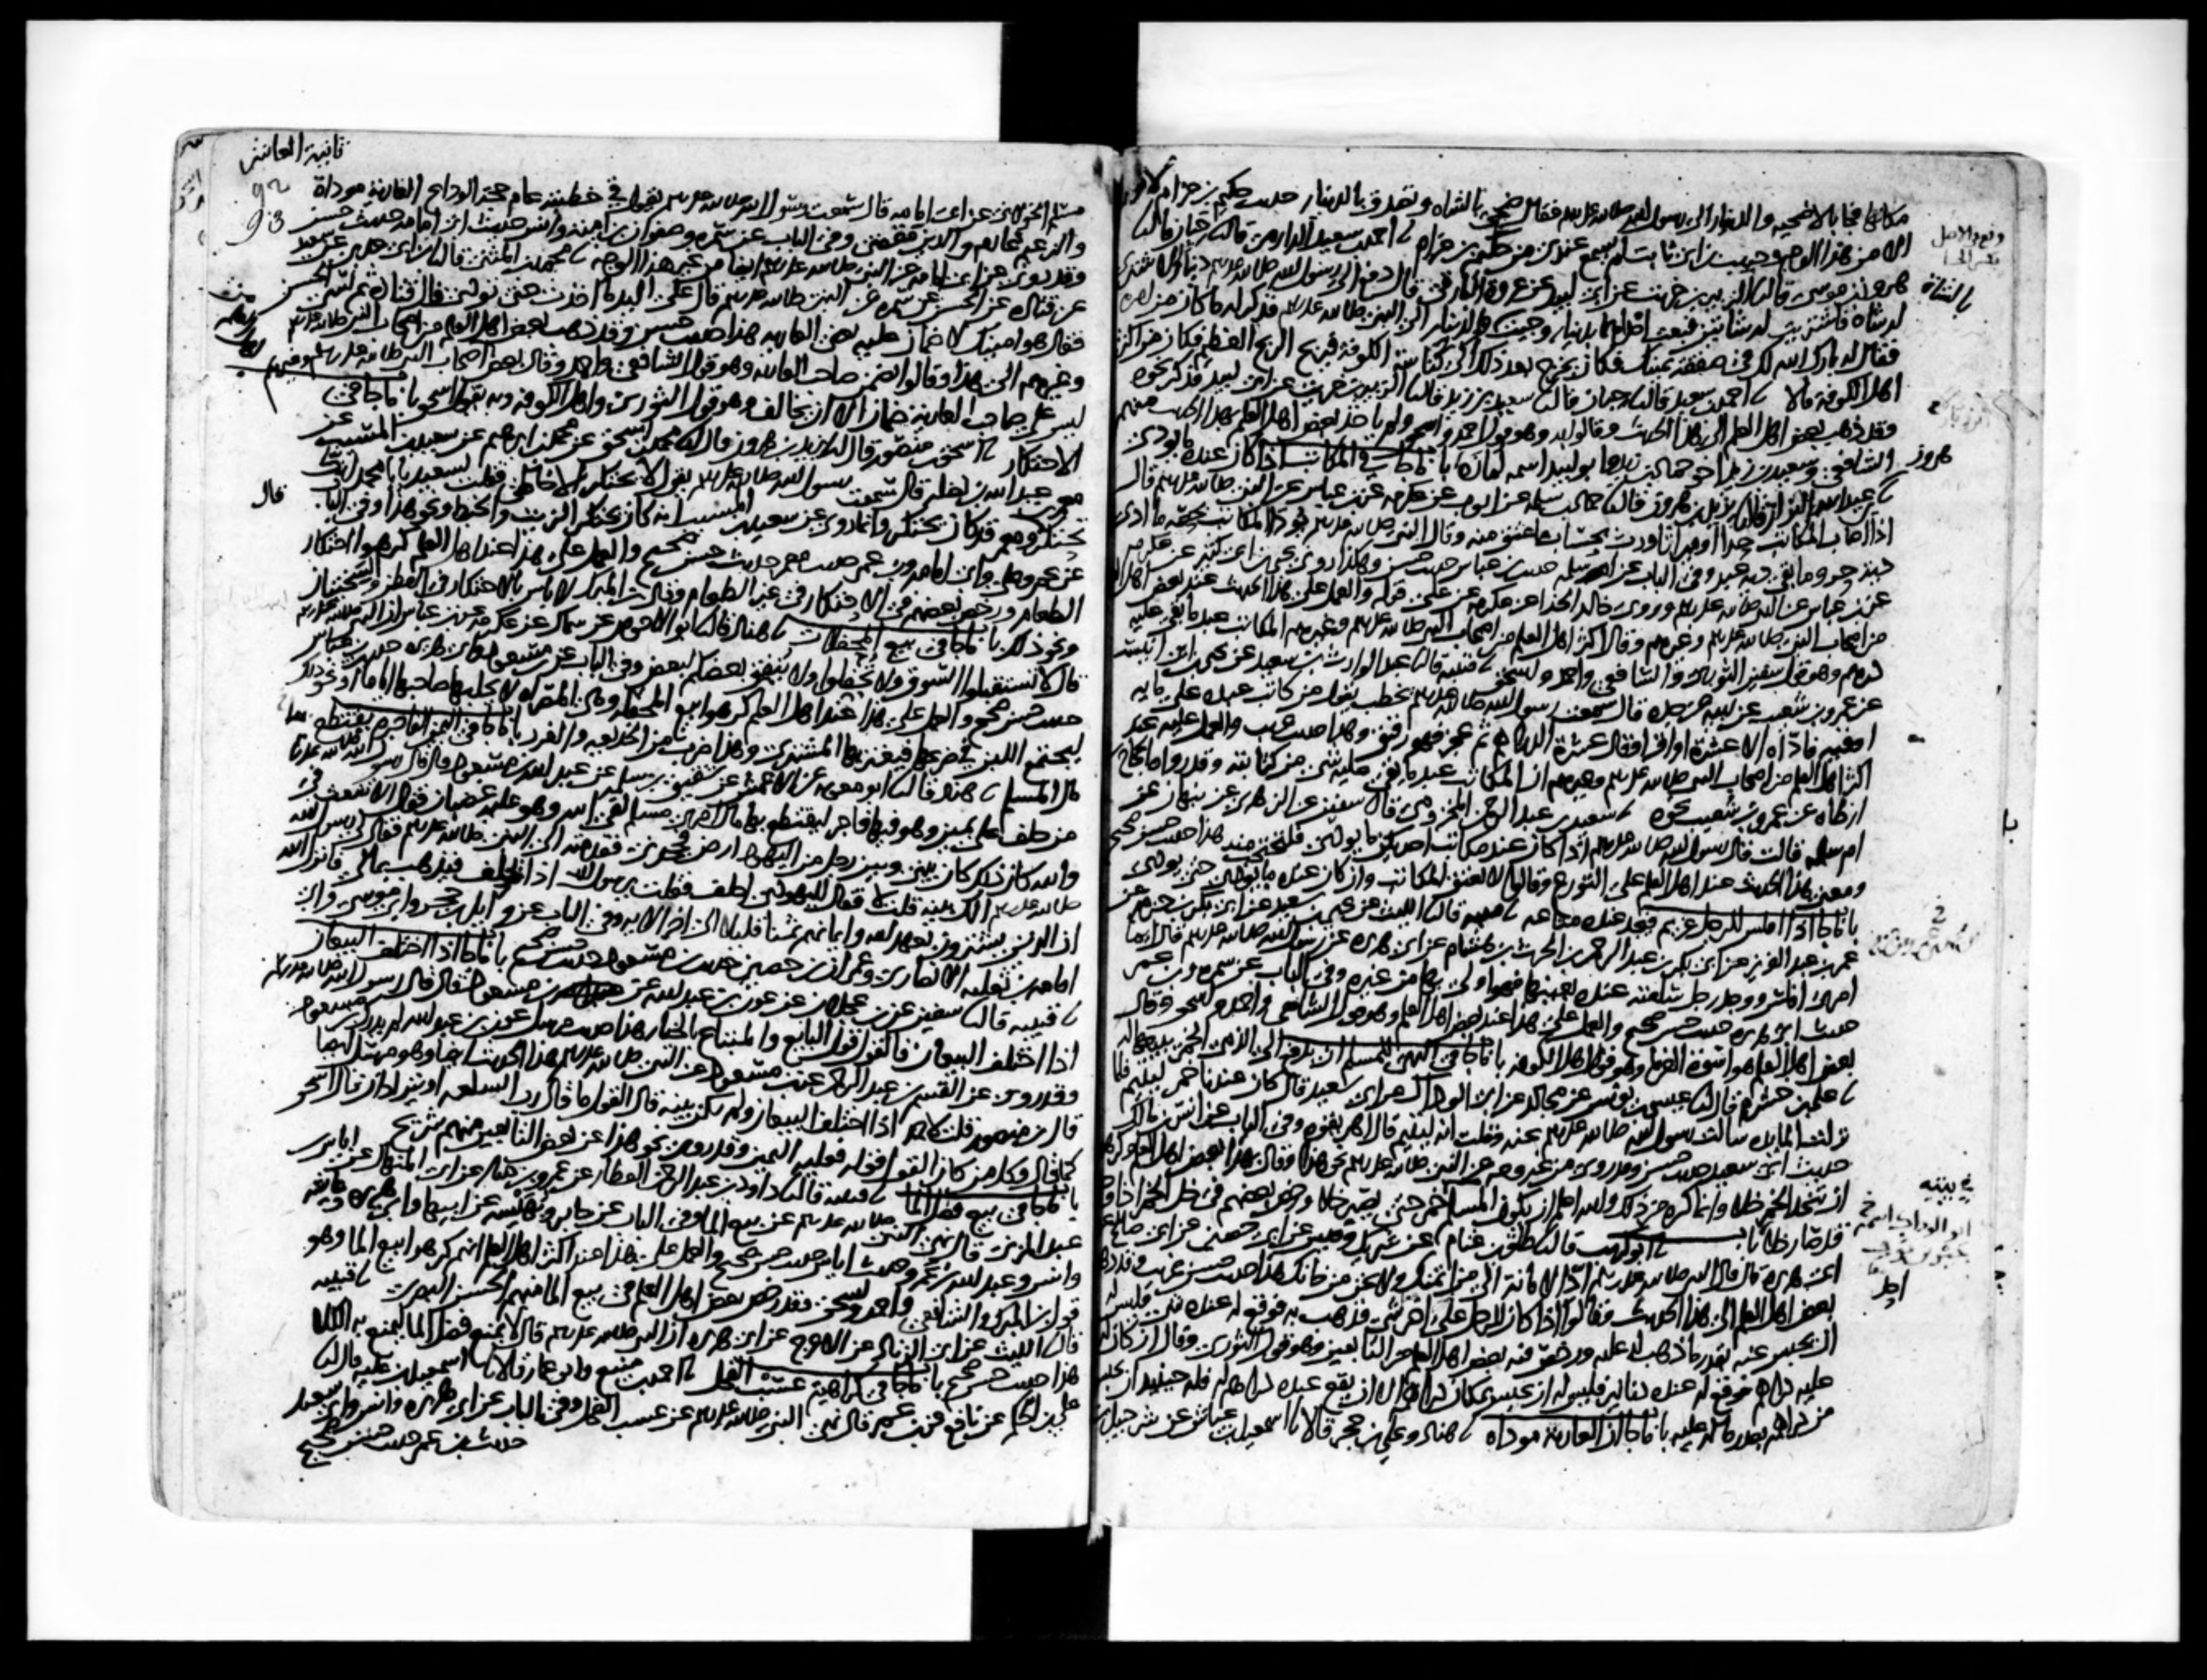 مكانها فجا بالاضحيه والدينار الى رسول الله صلى الله عليه وسلم فقال ضحى بالشاه وتصدق بالدينار حديث حكيم بن حزام لا نعرفه
الا من هذا الوجه وحبيب بن ابي ثابت لم يسمع عندي من حكيم بن حزام احمد بن سعيد الدارمي قال حبان قال
هرون بن موسى قال الزبير بن خريت عن ابي لبيد عن عروة البارقي قال دفع الى رسول الله صلى الله عليه وسلم دينارا لاشتري
له شاه فاشتريت له شاتين فبعت احداهما بدينار وجيت بالشاه والدينار الى النبي صلى الله عليه وسلم فذكر له ما كان من امره
فقال له بارك الله لك في صفقة يمينك فكان يخرج بعد ذلك الى كناسة الكوفة فيربح الربح العظيم فكان من اكثر
اهل الكوفه مالا احمد بن سعيد قال حبان قال سعيد بن زيد قال الزبير بن خريت عن ابي لبيد فذكر نحوه
وقد ذهب بعض اهل العلم الى هذا الحديث وقالوا به وهو قول احمد واسحق ولم ياخذ بعض اهل العلم بهذا الحديث منهم
الشافعي وسعيد بن زيد اخو حماد بن زيد وابو لبيد اسمه لمازه باب ما جا في المكاتب اذا كان عنده ما يودي
هرون بن عبد الله البزاز قال يزيد بن هرون قال حماد بن سلمه عن ايوب عن عكرمه عن ابن عباس عن النبي صلى الله عليه وسلم قال
اذا اصاب المكاتب حدا او ميراثا ورث بحساب ما عتق منه وقال النبي صلى الله عليه وسلم يودى المكاتب بحصة ما ادى
دية حر وما بقي دية عبد وفي الباب عن ام سلمه حديث ابن عباس حديث حسن وهكذا روى يحيى بن ابي كثير عن عكرمه
عن ابن عباس عن النبي صلى الله عليه وسلم وروى خالد الحذا عن عكرمه عن علي قوله والعمل على هذا الحديث عند بعض اهل العلم
من اصحاب النبي صلى الله عليه وسلم وغيرهم وقال اكثر اهل العلم من اصحاب النبي صلى الله عليه وسلم وغيرهم المكاتب عبد ما بقي عليه
درهم وهو قول سفين الثوري والشافعي واحمد واسحق قتيبه قال عبد الوارث بن سعيد عن يحيى بن ابي انيسة
عن عمرو بن شعيب عن ابيه عن جده قال سمعت رسول الله صلى الله عليه وسلم يخطب يقول من كاتب عبده على مايه
اوقيه فاداه الا عشرة اواق او قال عشرة الدراهم ثم عجز فهو رقيق وهذا حديث غريب والعمل عليه عند
اكثر اهل العلم من اصحاب النبي صلى الله عليه وسلم وغيرهم ان المكاتب عبد ما بقي عليه شي من كتابته وقد روى الحجاج
بن ارطاه عن عمرو بن شعيب نحوه سعيد بن عبد الرحمن المخزومي قال سفين عن الزهري عن نبهان عن
ام سلمه قالت قال رسول الله صلى الله عليه وسلم اذا كان عند مكاتب احداكن ما يودي فلتحتجب منه هذا حديث حسن صحيح
ومعنى هذا الحديث عند اهل العلم على التورع وقالوا لا يعتق المكاتب وان كان عنده ما يودي حتى يودي
باب ما جا اذا افلس للرجل غريم فيجد عنده متاعه قتيبه قال الليث عن يحيى بن سعيد عن ابي بكر بن حزم عن
عمر بن عبد العزيز عن ابي بكر بن عبد الرحمن بن الحرث بن هشام عن ابي هريره عن رسول الله صلى الله عليه وسلم قال ايما
امرئ افلس ووجد رجل سلعته عنده بعينها فهو اولى بها من غيره وفي الباب عن سمره وابن عمر
حديث ابي هريره حديث حسن صحيح والعمل على هذا عند بعض اهل العلم وهو قول الشافعي واحمد واسحق وقال
بعض اهل العلم هو اسوة الغرما وهو قول اهل الكوفه باب ما جا في النهي للمسلم ان يدفع الى الذمي الخمر يبيعها له
علي بن خشرم قال عيسى بن يونس عن مجالد عن ابي الوداك عن ابي سعيد قال كان عندنا خمر ليتيم فلما
نزلت المايده سالت رسول الله صلى الله عليه وسلم عنه وقلت انه ليتيم قال اهريقوه وفي الباب عن انس بن مالك
حديث ابي سعيد حديث حسن وقد روي من غير وجه عن النبي صلى الله عليه وسلم نحو هذا وقال بهذا بعض اهل العلم وكرهوا
ان تتخذ الخمر خلا وانما كره من ذلك والله اعلم ان يكون المسلم في بيته خمر حتى يصير خلا ورخص بعضهم في خل الخمر اذا وجد
قد صار خلا باب ابو كريب قال طلق بن غنام عن شريك وقيس عن ابي حصين عن ابي صالح عن
ابي هريره قال قال النبي صلى الله عليه وسلم اد الامانة الى من ائتمنك ولا تخن من خانك هذا حديث حسن غريب وقد ذهب
بعض اهل العلم الى هذا الحديث وقالوا اذا كان للرجل على اخر شي فذهب به فوقع له عنده شي فليس له
ان يحبس عنه بقدر ما ذهب له عليه ورخص فيه بعض اهل العلم من التابعين وهو قول الثوري وقال ان كان له
عليه دراهم فوقع له عنده دنانير فليس له ان يحبس بمكان دراهمه الا ان يقع عنده دراهم له فله حينيذ ان يحبس
من دراهمه بقدر ما له عليه باب ما جا ان العارية موداه هناد وعلي بن حجر قالا اسمعيل بن عياش عن شرحبيل بن
ثانية العاشر
92
93
مسلم الخولاني عن ابي امامه قال سمعت رسول الله صلى الله عليه وسلم يقول في خطبته عام حجة الوداع العارية موداة
والزعيم غارم والدين مقضي وفي الباب عن سمره وصفوان بن اميه وانس حديث ابي امامه حديث حسن
وقد روي عن ابي امامه عن النبي صلى الله عليه وسلم ايضا من غير هذا الوجه محمد بن المثنى قال ابن ابي عدي عن سعيد
عن قتاده عن الحسن عن سمره عن النبي صلى الله عليه وسلم قال على اليد ما اخذت حتى تودي قال قتادة ثم نسي الحسن
فقال هو امينك لا ضمان عليه يعني العاريه هذا حديث حسن وقد ذهب بعض اهل العلم من اصحاب النبي صلى الله عليه وسلم
وغيرهم الى هذا وقالوا يضمن صاحب العاريه وهو قول الشافعي واحمد وقال بعض اصحاب النبي صلى الله عليه وسلم وغيرهم
ليس على صاحب العارية ضمان الا ان يخالف وهو قول الثوري واهل الكوفه وبه يقول اسحق باب ما جا في
الاحتكار اسحق بن منصور قال يزيد بن هرون قال محمد بن اسحق عن محمد بن ابرهيم عن سعيد بن المسيب عن
معمر بن عبد الله بن نضله قال سمعت رسول الله صلى الله عليه وسلم يقول لا يحتكر الا خاطئ فقلت لسعيد يا با محمد انك
تحتكر قال ومعمر قد كان يحتكر وانما روي عن سعيد بن المسيب انه كان يحتكر الزيت والحنطة ونحو هذا وفي الباب
عن عمر وعلي وابي امامه وابن عمر حديث معمر حديث حسن صحيح والعمل على هذا عند اهل العلم كرهوا احتكار
الطعام ورخص بعضهم في الاحتكار في غير الطعام وقال ابن المبرك لا باس بالاحتكار في القطن والسختيان
ونحو ذلك باب ما جا في بيع المحفلات هناد قال ابو الاحوص عن سماك عن عكرمه عن ابن عباس ان النبي صلى الله عليه وسلم
قال لا تستقبلوا السوق ولا تحفلوا ولا ينفق بعضكم لبعض وفي الباب عن ابن مسعود وابي هريره حديث ابن عباس
حديث حسن صحيح والعمل على هذا عند اهل العلم كرهوا بيع المحفلة وهي المصراه لا يحلبها صاحبها اياما او نحو ذلك
ليجتمع اللبن في ضرعها فيغتر بها المشتري وهذا ضرب من الخديعه والغرر باب ما جا في اليمين الفاجرة يقتطع بها
مال المسلم هناد قال ابو معويه عن الاعمش عن شقيق بن سلمه عن عبد الله بن مسعود قال قال رسول الله صلى الله عليه وسلم
من حلف على يمين وهو فيها فاجر ليقتطع بها مال امرئ مسلم لقي الله وهو عليه غضبان فقال الاشعث في
والله كان ذلك كان بيني وبين رجل من اليهود ارض فجحدني فقدمته الى النبي صلى الله عليه وسلم فقال لي رسول الله
صلى الله عليه وسلم الك بينه قلت لا فقال لليهودي احلف فقلت يرسول الله اذا يحلف فيذهب بمالي فانزل الله
ان الذين يشترون بعهد الله وايمانهم ثمنا قليلا الى اخر الايه وفي الباب عن وايل بن حجر وابي موسى وابي
امامه بن ثعلبه الانصاري وعمران بن حصين حديث ابن مسعود حديث حسن صحيح باب ما جا اذا اختلف البيعان
قتيبه قال سفين عن ابن عجلان عن عون بن عبد الله عن ابن مسعود قال قال رسول الله صلى الله عليه وسلم
اذا اختلف البيعان فالقول قول البايع والمبتاع بالخيار هذا حديث مرسل عون بن عبد الله لم يدرك ابن مسعود
وقد روي عن القسم بن عبد الرحمن عن ابن مسعود عن النبي صلى الله عليه وسلم هذا الحديث ايضا وهو مرسل ايضا
قال ابن منصور قلت لاحمد اذا اختلف البيعان ولم تكن بينه قال القول ما قال رب السلعه او يترادان قال اسحق
كما قال وكل من كان القول قوله فعليه اليمين وقد روي نحو هذا عن بعض التابعين منهم شريح
باب ما جا في بيع فضل الما قتيبه قال داود بن عبد الرحمن العطار عن عمرو بن دينار عن ابي المنهال عن اياس بن
عبد المزني قال نهى النبي صلى الله عليه وسلم عن بيع الما وفي الباب عن جابر وبهيسه عن ابيها وابي هريره وعايشه
وانس وعبد الله بن عمرو حديث اياس حديث حسن صحيح والعمل على هذا عند اكثر اهل العلم انهم كرهوا بيع الما وهو
قول ابن المبرك والشافعي واحمد واسحق وقد رخص بعض اهل العلم في بيع الما منهم الحسن البصري قتيبه
قال الليث عن ابي الزناد عن الاعرج عن ابي هريره ان النبي صلى الله عليه وسلم قال لا يمنع فضل الما ليمنع به الكلا
هذا حديث حسن صحيح باب ما جا في كراهية عسب الفحل احمد بن منيع وابو عمار قالا اسمعيل بن عليه قال
علي بن الحكم عن نافع عن ابن عمر قال نهى النبي صلى الله عليه وسلم عن عسب الفحل وفي الباب عن ابي هريره وانس وابي سعيد
حديث ابن عمر حديث حسن صحيح